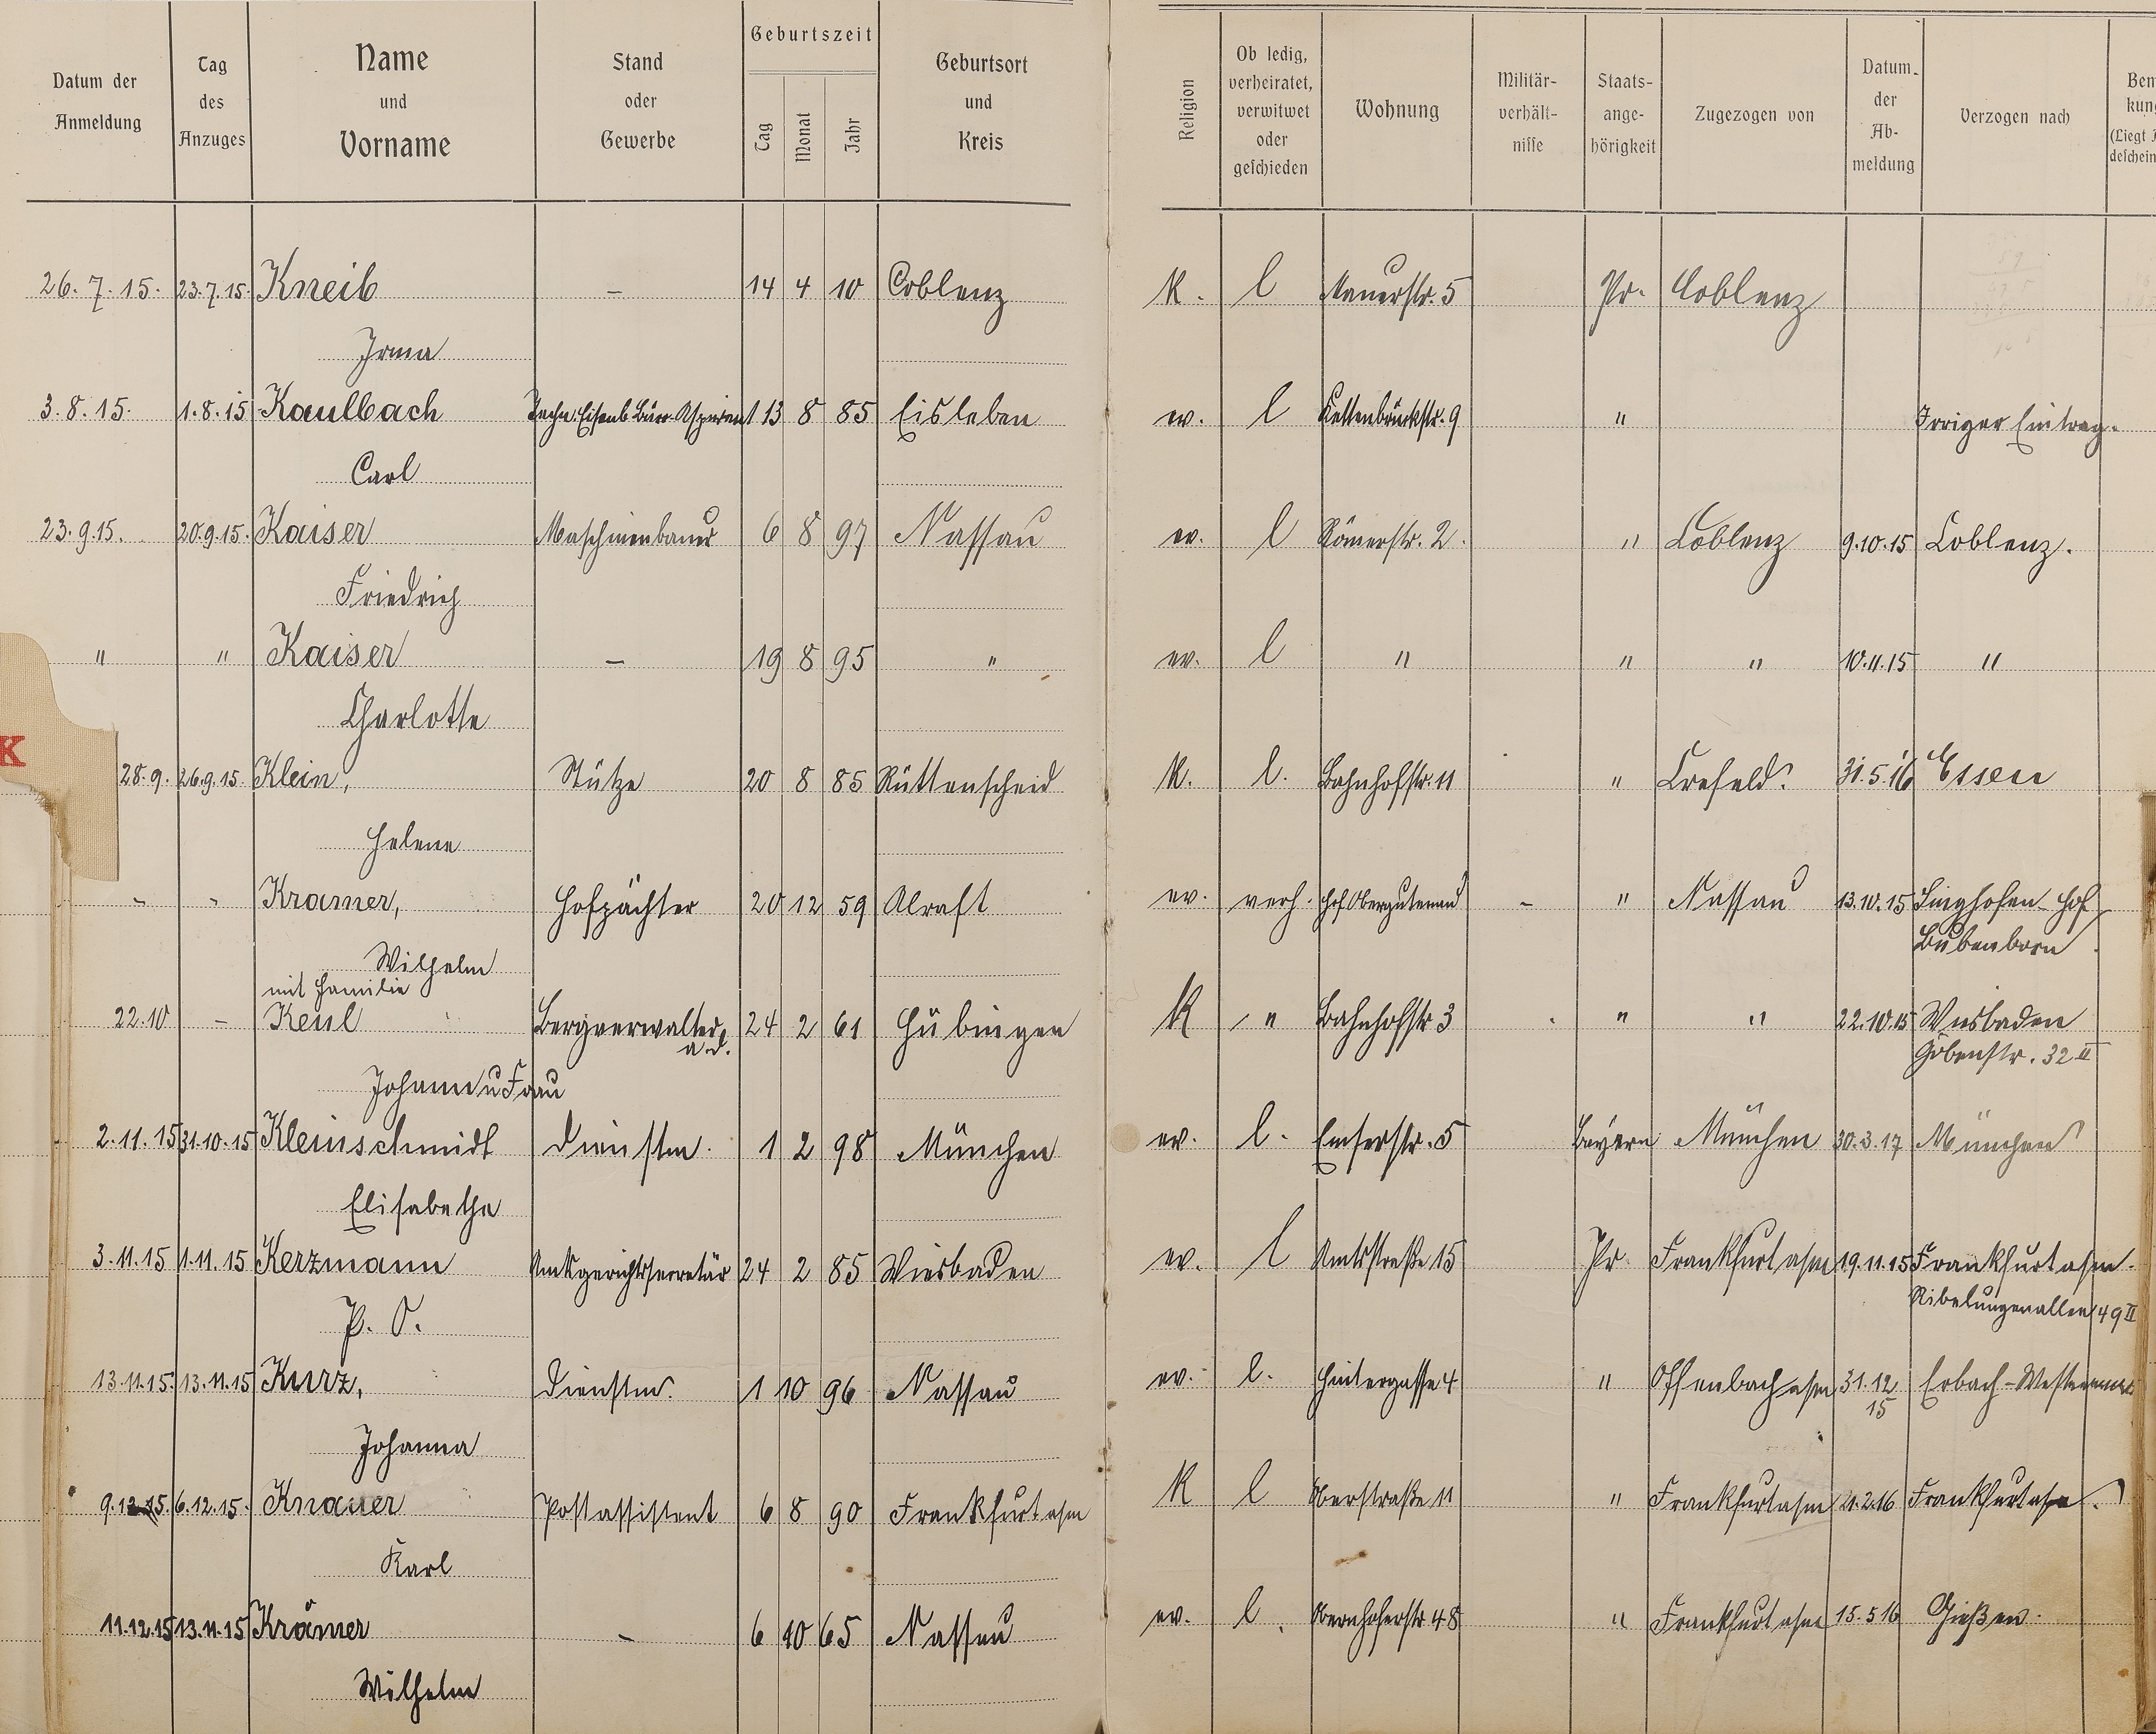 Datum der Anmeldung | Tag des Anzuges | Name und Vorname | Stand oder Gewerbe | Geburtszeit Tag Monat Jahr | Geburtsort und Kreis | Religion | Ob ledig, verheiratet, verwitwet oder geschieden | Wohnung | Militär-verhält-nisse | Staats-ange-hörigkeit | Zugezogen von | Datum der Ab-meldung | Verzogen nach
26.7.15. 23.7.15. Kneib – 14 4 10 Coblenz K. l Mauerstr. 5 Pr. Coblenz
Irma
3.8.15. 1.8.15 Kaulbach Techn. Eisenb. Büro Aspirant 13 8 85 Eisleben ev. l Kettenbrückstr. 9 " Irriger Eintrag.
Carl
23.9.15. 20.9.15. Kaiser Maschinenbauer 6 8 97 Nassau ev. l Römerstr. 2. " Coblenz 9.10.15 Coblenz.
Friedrich
" " Kaiser – 19 8 95 " ev. l " " " 10.11.15 "
Charlotte
K
28.9. 26.9.15. Klein, Stütze 20 8 85 Rüttenscheid K. l. Bahnhofstr. 11 " Crefeld. 31.5.16 Essen
Helene
" " Kramer, Hofpächter 20 12 59 Alraft ev. verh. Hof Obergutenau – " Nassau 13.10.15 Singhofen-Hof
Bubenborn
Wilhelm
mit Familie
22.10 – Keul Bergverwalter a.d. 24 2 61 Hübingen K " Bahnhofstr 3 " " 22.10.15 Wiesbaden
Göbenstr. 32 II
Johann u Frau
2.11.15 31.10.15 Kleinschmidt Dienstm. 1 2 98 München ev. l. Emserstr. 5 Bayern München 30.3.17 München
Elisabethe
3.11.15 1.11.15 Kerzmann Amtsgerichtssecretär 24 2 85 Wiesbaden ev. l Amtsstraße 15 Pr. Frankfurt a/m 19.11.15 Frankfurt a/m.
Nibelungenallee 49 II
P. O.
13.11.15. 13.11.15 Kurz, Dienstm. 1 10 96 Nassau ev. l. Hintergasse 4 " Offenbach a/m 31.12 15 Erbach-Westerwald
Johanna
9.12.15. 6.12.15. Knauer Postassistent 6 8 90 Frankfurt a/m K l Oberstraße 11 " Frankfurt a/m 21.2.16 Frankfurt a/m.
Karl
11.12.15 13.11.15 Krämer – 6 10 65 Nassau ev. l. Obernhoferstr 48 " Frankfurt a/m 15.5 16 Gießen.
Wilhelm